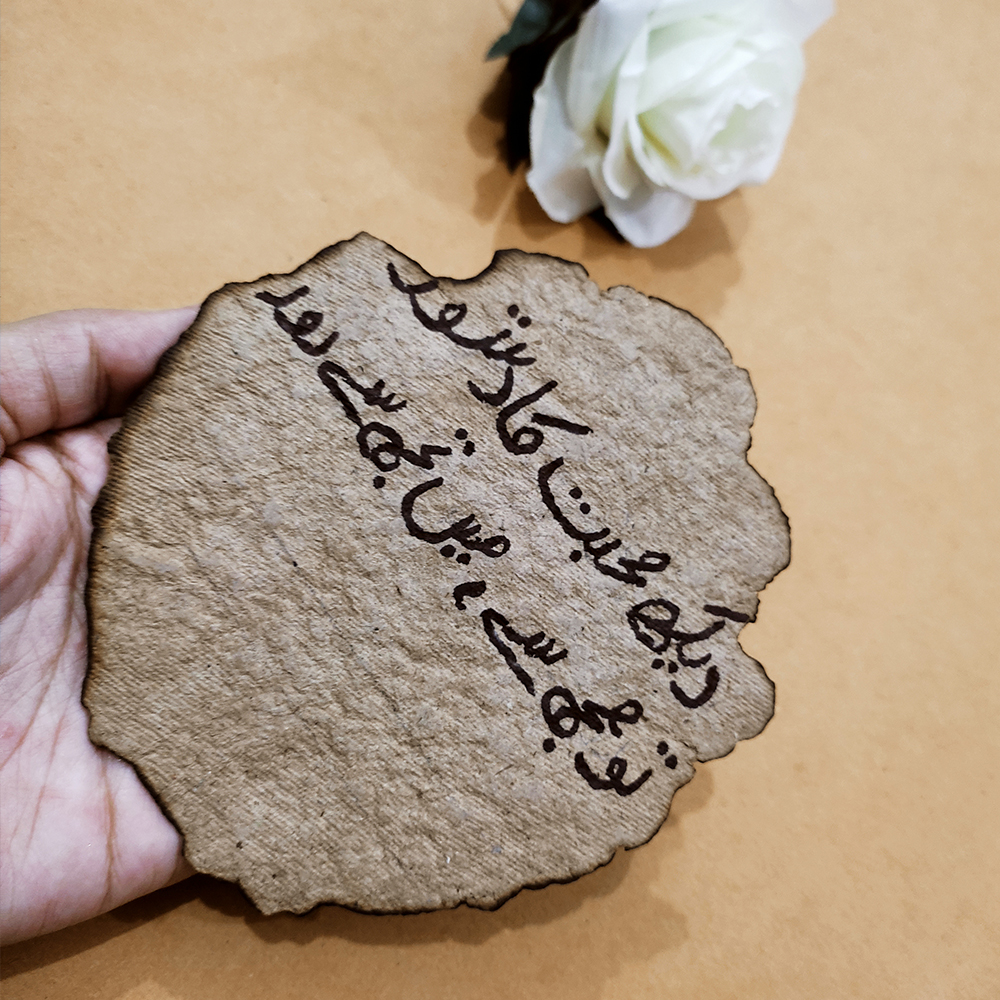 دیکھ محبت کا دستور
تو مجھ سے ، میں تجھ سے دور